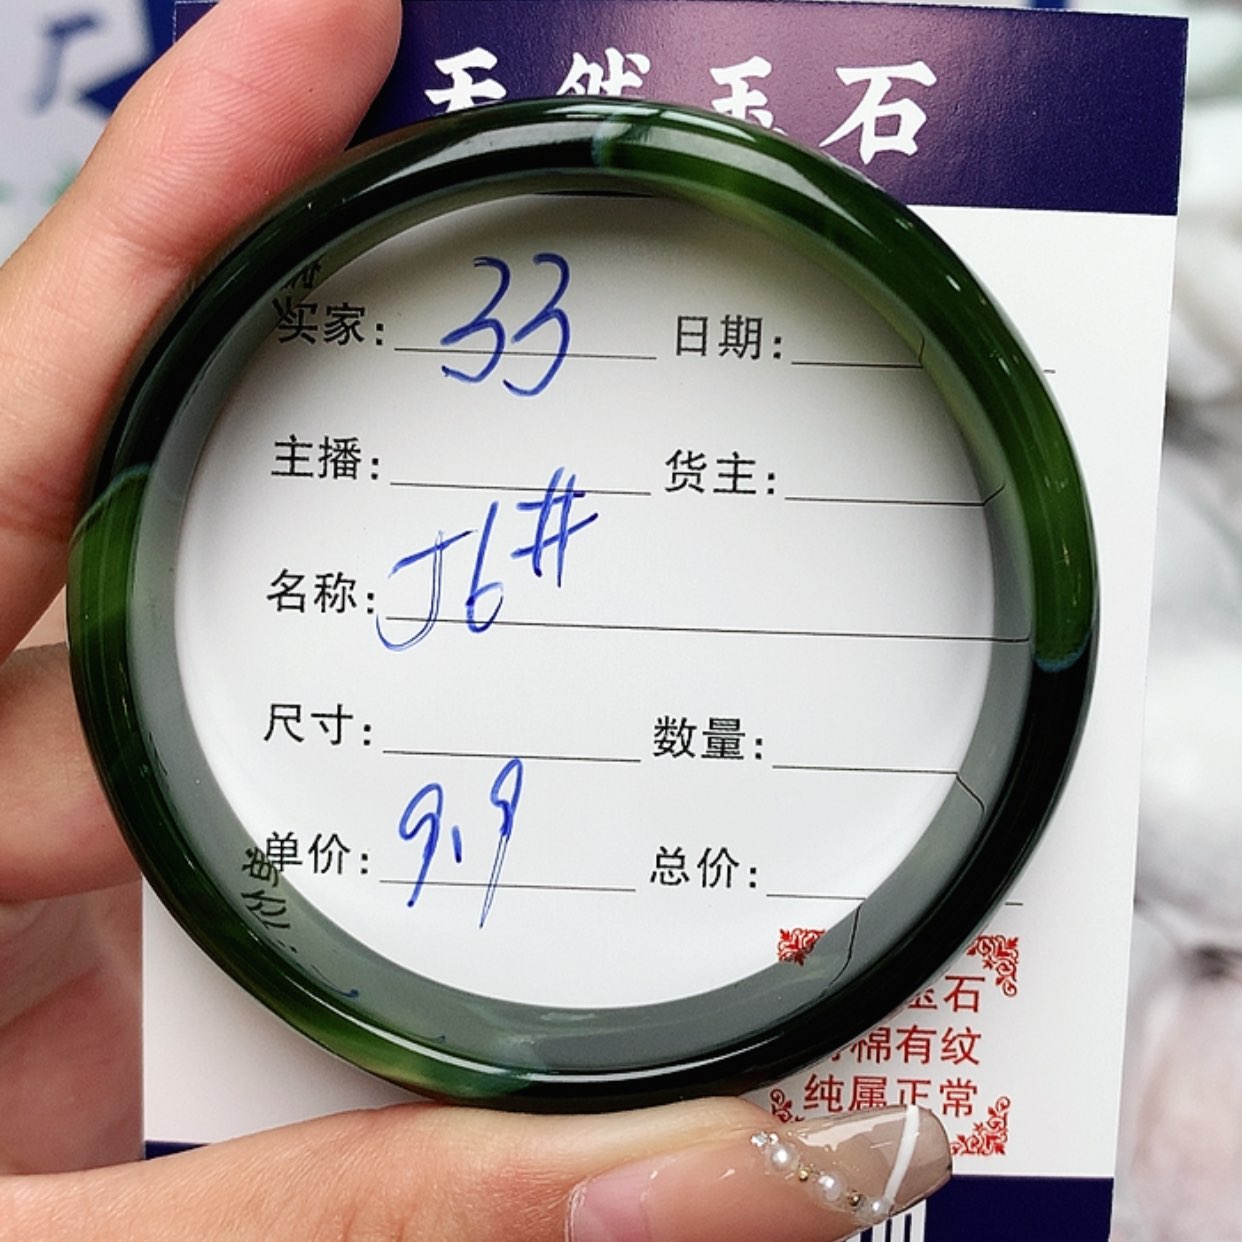 天然玉石
买家: 33 日期:
主播: 货主:
名称: J6#
尺寸: 数量:
单价: 9.9 总价:
玉石
棉有纹
纯属正常